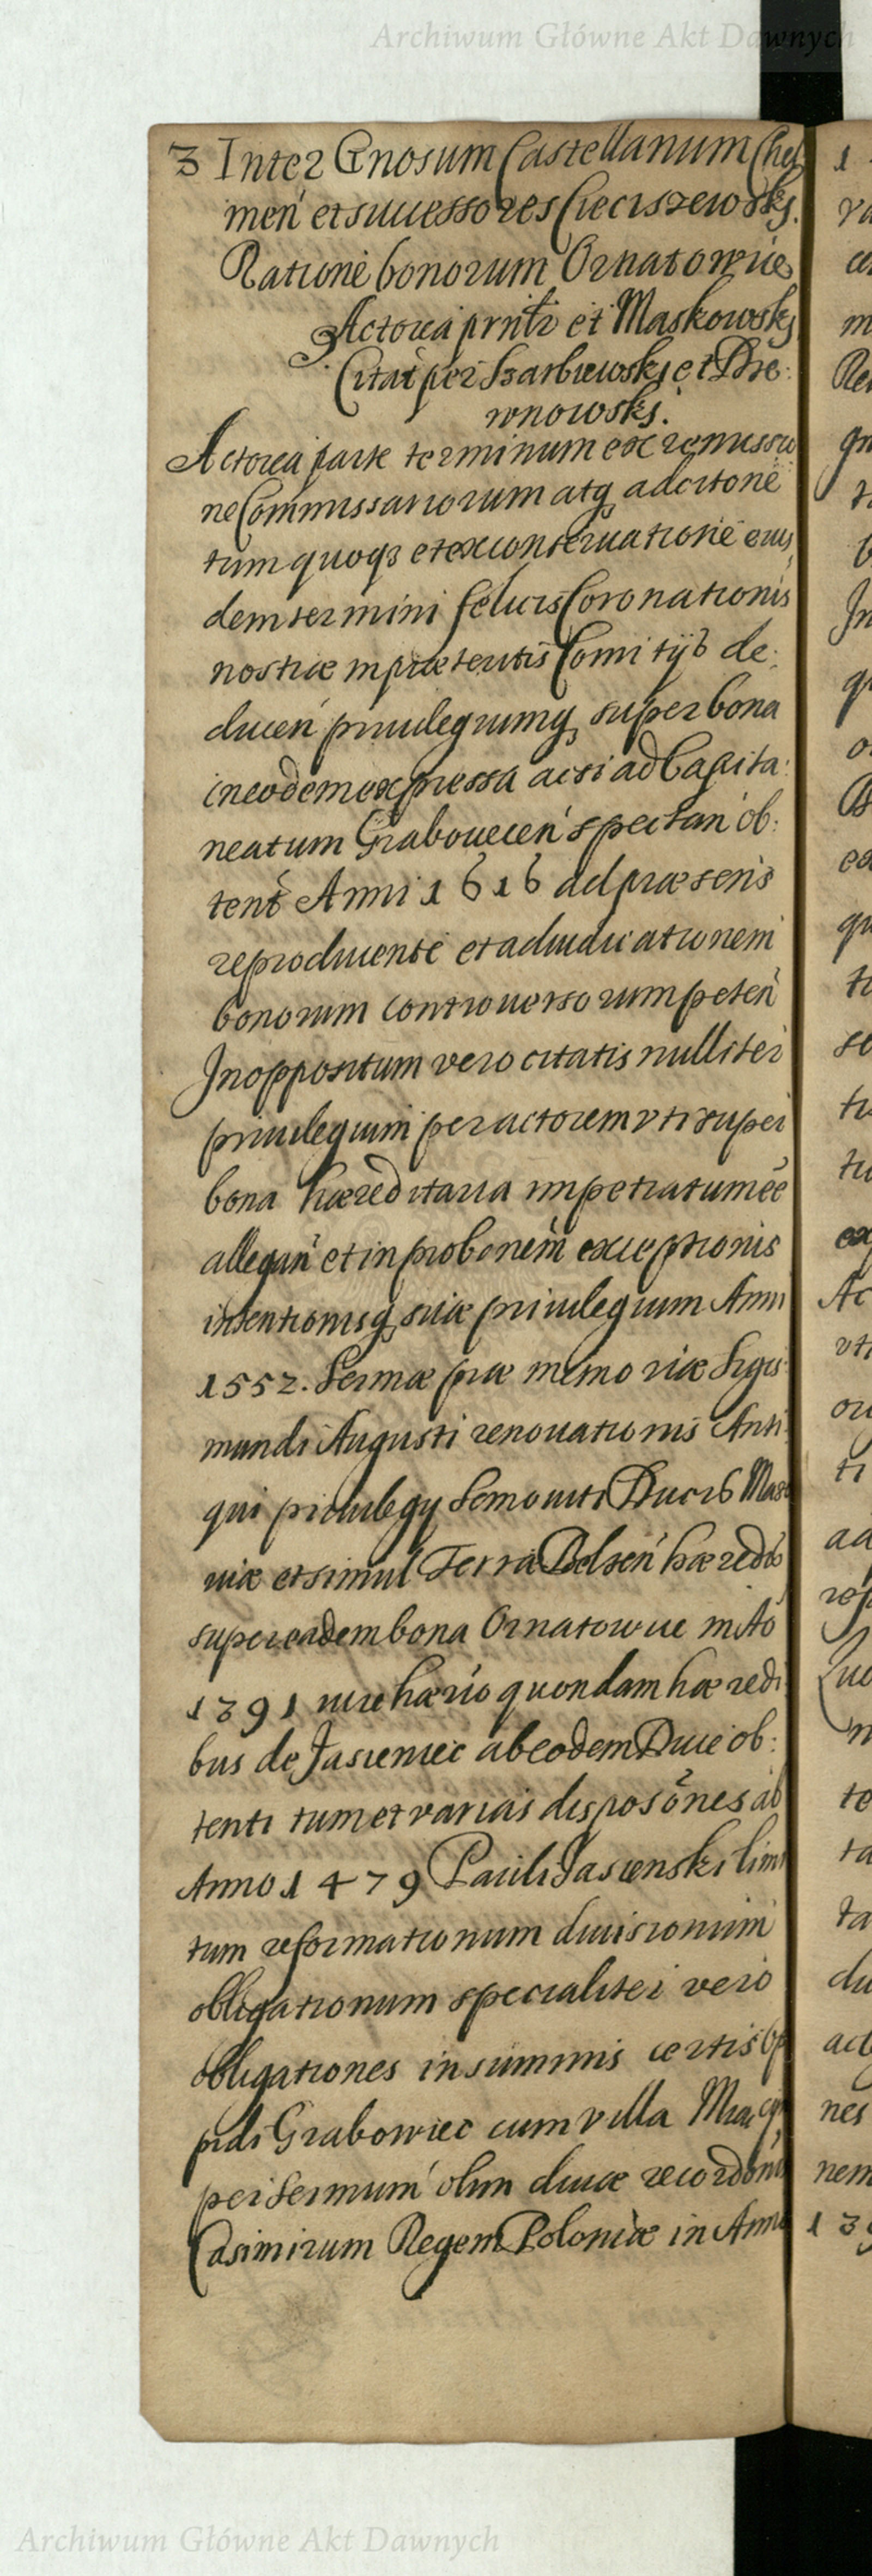 Archiwum Główne Akt Dawnych
3 Inter Gnosum Castellanum Chel
men et successores Cieciszewskj.
Rationē bonorum Ornatowice
Actorea prntr et Maskowskj
Citat per Szarbiewskj et Drze:
wnowskj.
Actorea parte terminum ex remissio
ne Commissariorum atq adcitone
tum quoqz et ex conseruatione eius
dem termini felicis Coronationis
nostræ in præteritis Comitijs de:
ducen priuilegiumq super bona
in eodem expressa ac si ad Capita:
neatum Grabouecen spectan ob:
tent Anni 1616 ad præsens
reproducente et adiudicationem
bonorum controuersorum peten
In oppositum vero citatis nulliter
priuilegium per actorem vti super
bona hæreditaria impetratum ēē
allegan et in probonem exceptionis
intentionisq suæ priuilegium Anni
1552. Sermæ piæ memoriæ Sigis
mundi Augusti renouationis Anti
qui priuilegy Semouiti Ducis Maso
uiæ et simul Terræ Belsen hæredis
super eadem bona Ornatowice in Ao
1391 iure hærio quondam hæredi
bus de Jasieniec ab eodem Duce ob:
tenti tum et varias disposones ab
Anno 1479 Pauli Jasienski limi
tum reformationum diuisionum
obligationum specialiter vero
obligationes in summis certis op
pidi Grabowiec cum villa
per Sermum olim diuæ recordonis
Casimirum Regem Poloniæ in Anno
Archiwum Główne Akt Dawnych